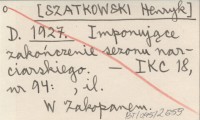 [SZATKOWSKI Henryk]
D. 1927. Imponujące
zakończenie sezonu nar-
ciarskiego. — IKC 18,
nr 94: , il.
W Zakopanem.